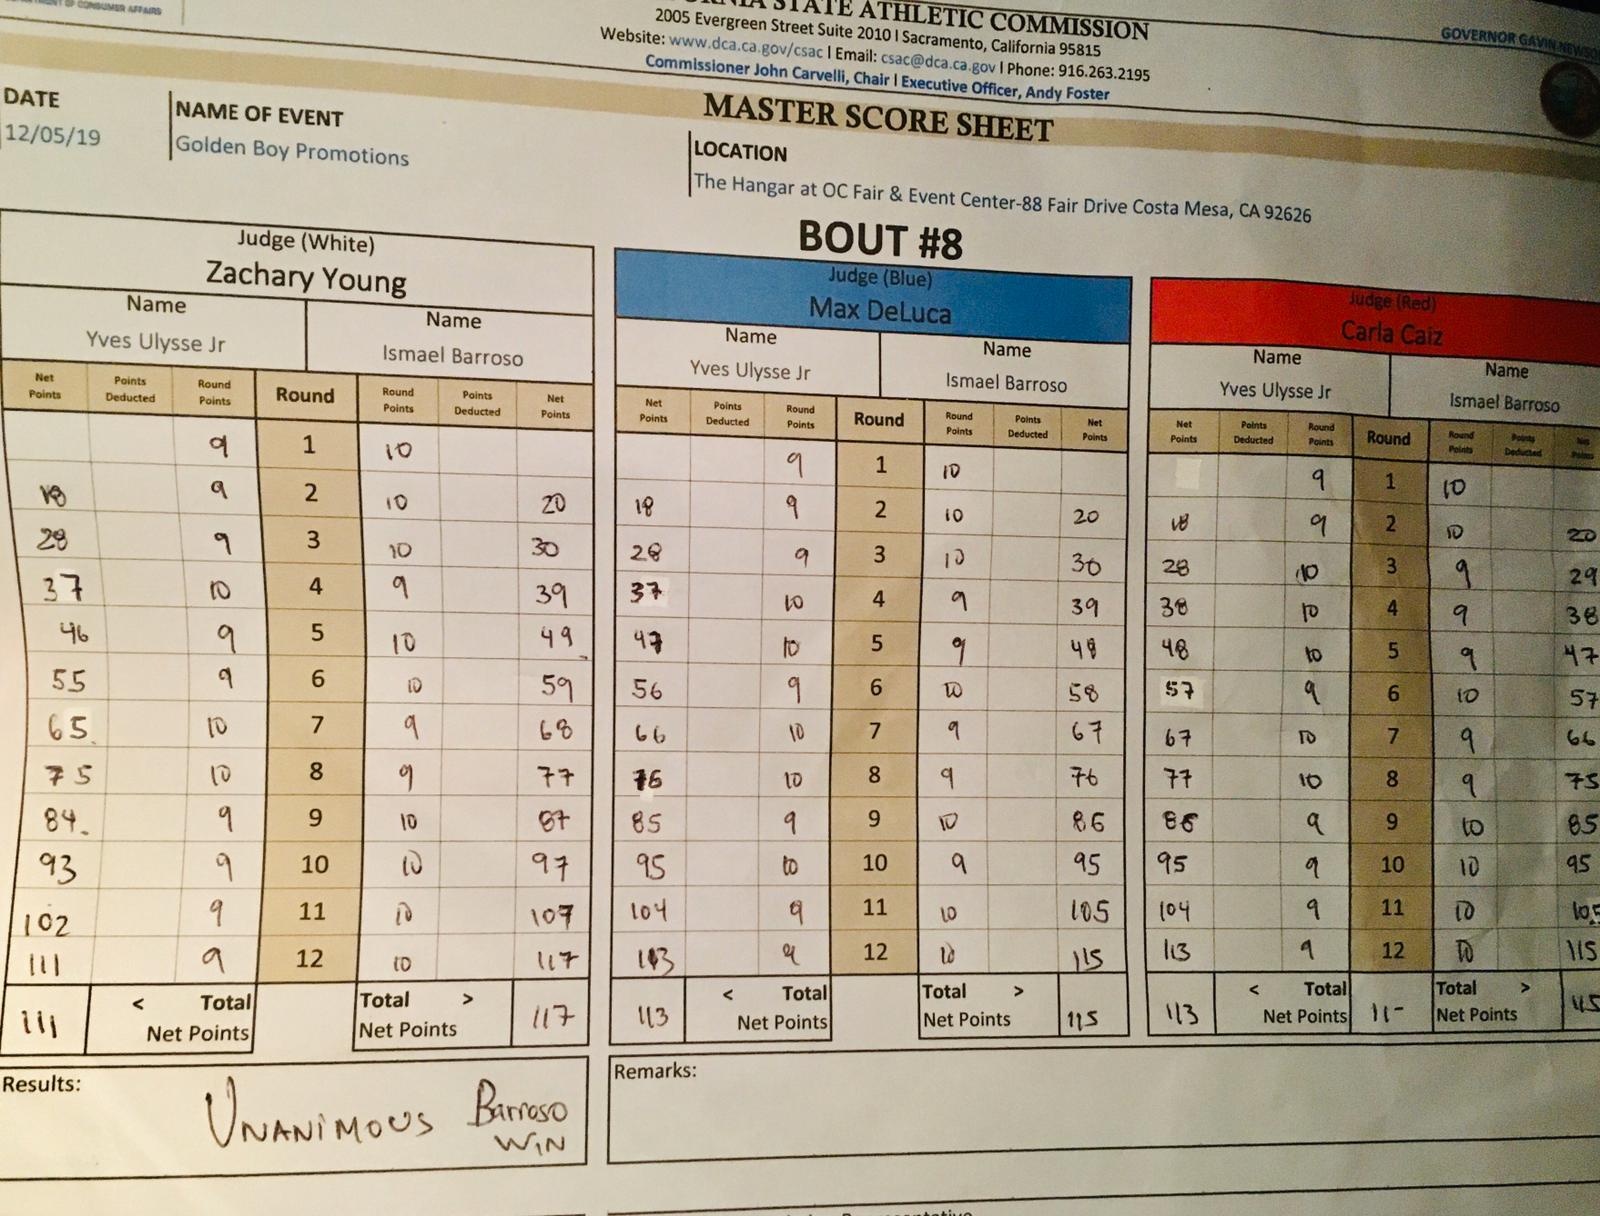 DEPARTMENT OF CONSUMER AFFAIRS
STATE ATHLETIC COMMISSION
2005 Evergreen Street Suite 2010 I Sacramento, California 95815
Website: www.dca.ca.gov/csac I Email: csac@dca.ca.gov I Phone: 916.263.2195
Commissioner John Carvelli, Chair I Executive Officer, Andy Foster
GOVERNOR GAVIN NEWSO
MASTER SCORE SHEET
DATE
12/05/19
NAME OF EVENT
Golden Boy Promotions
LOCATION
The Hangar at OC Fair & Event Center-88 Fair Drive Costa Mesa, CA 92626
BOUT #8
Judge (White)
Zachary Young
Name Name
Yves Ulysse Jr Ismael Barroso
Net Points Points Deducted Round Points Round Round Points Points Deducted Net Points
9 1 10
18 9 2 10 20
28 9 3 10 30
37 10 4 9 39
46 9 5 10 49
55 9 6 10 59
65 10 7 9 68
75 10 8 9 77
84 9 9 10 87
93 9 10 10 97
102 9 11 10 107
111 9 12 10 117
111 < Total Net Points Total > Net Points 117
Judge (Blue)
Max DeLuca
Name Name
Yves Ulysse Jr Ismael Barroso
Net Points Points Deducted Round Points Round Round Points Points Deducted Net Points
9 1 10
18 9 2 10 20
28 9 3 10 30
37 10 4 9 39
47 10 5 9 48
56 9 6 10 58
66 10 7 9 67
76 10 8 9 76
85 9 9 10 86
95 10 10 9 95
104 9 11 10 105
113 9 12 10 115
113 < Total Net Points Total > Net Points 115
Judge (Red)
Carla Caiz
Name Name
Yves Ulysse Jr Ismael Barroso
Net Points Points Deducted Round Points Round Round Points Points Deducted Net Points
9 1 10
18 9 2 10 20
28 10 3 9 29
38 10 4 9 38
48 10 5 9 47
57 9 6 10 57
67 10 7 9 66
77 10 8 9 75
86 9 9 10 85
95 9 10 10 95
104 9 11 10 105
113 9 12 10 115
113 < Total Net Points 11- Total > Net Points 115
Results:
UNANIMOUS Barroso
WIN
Remarks: